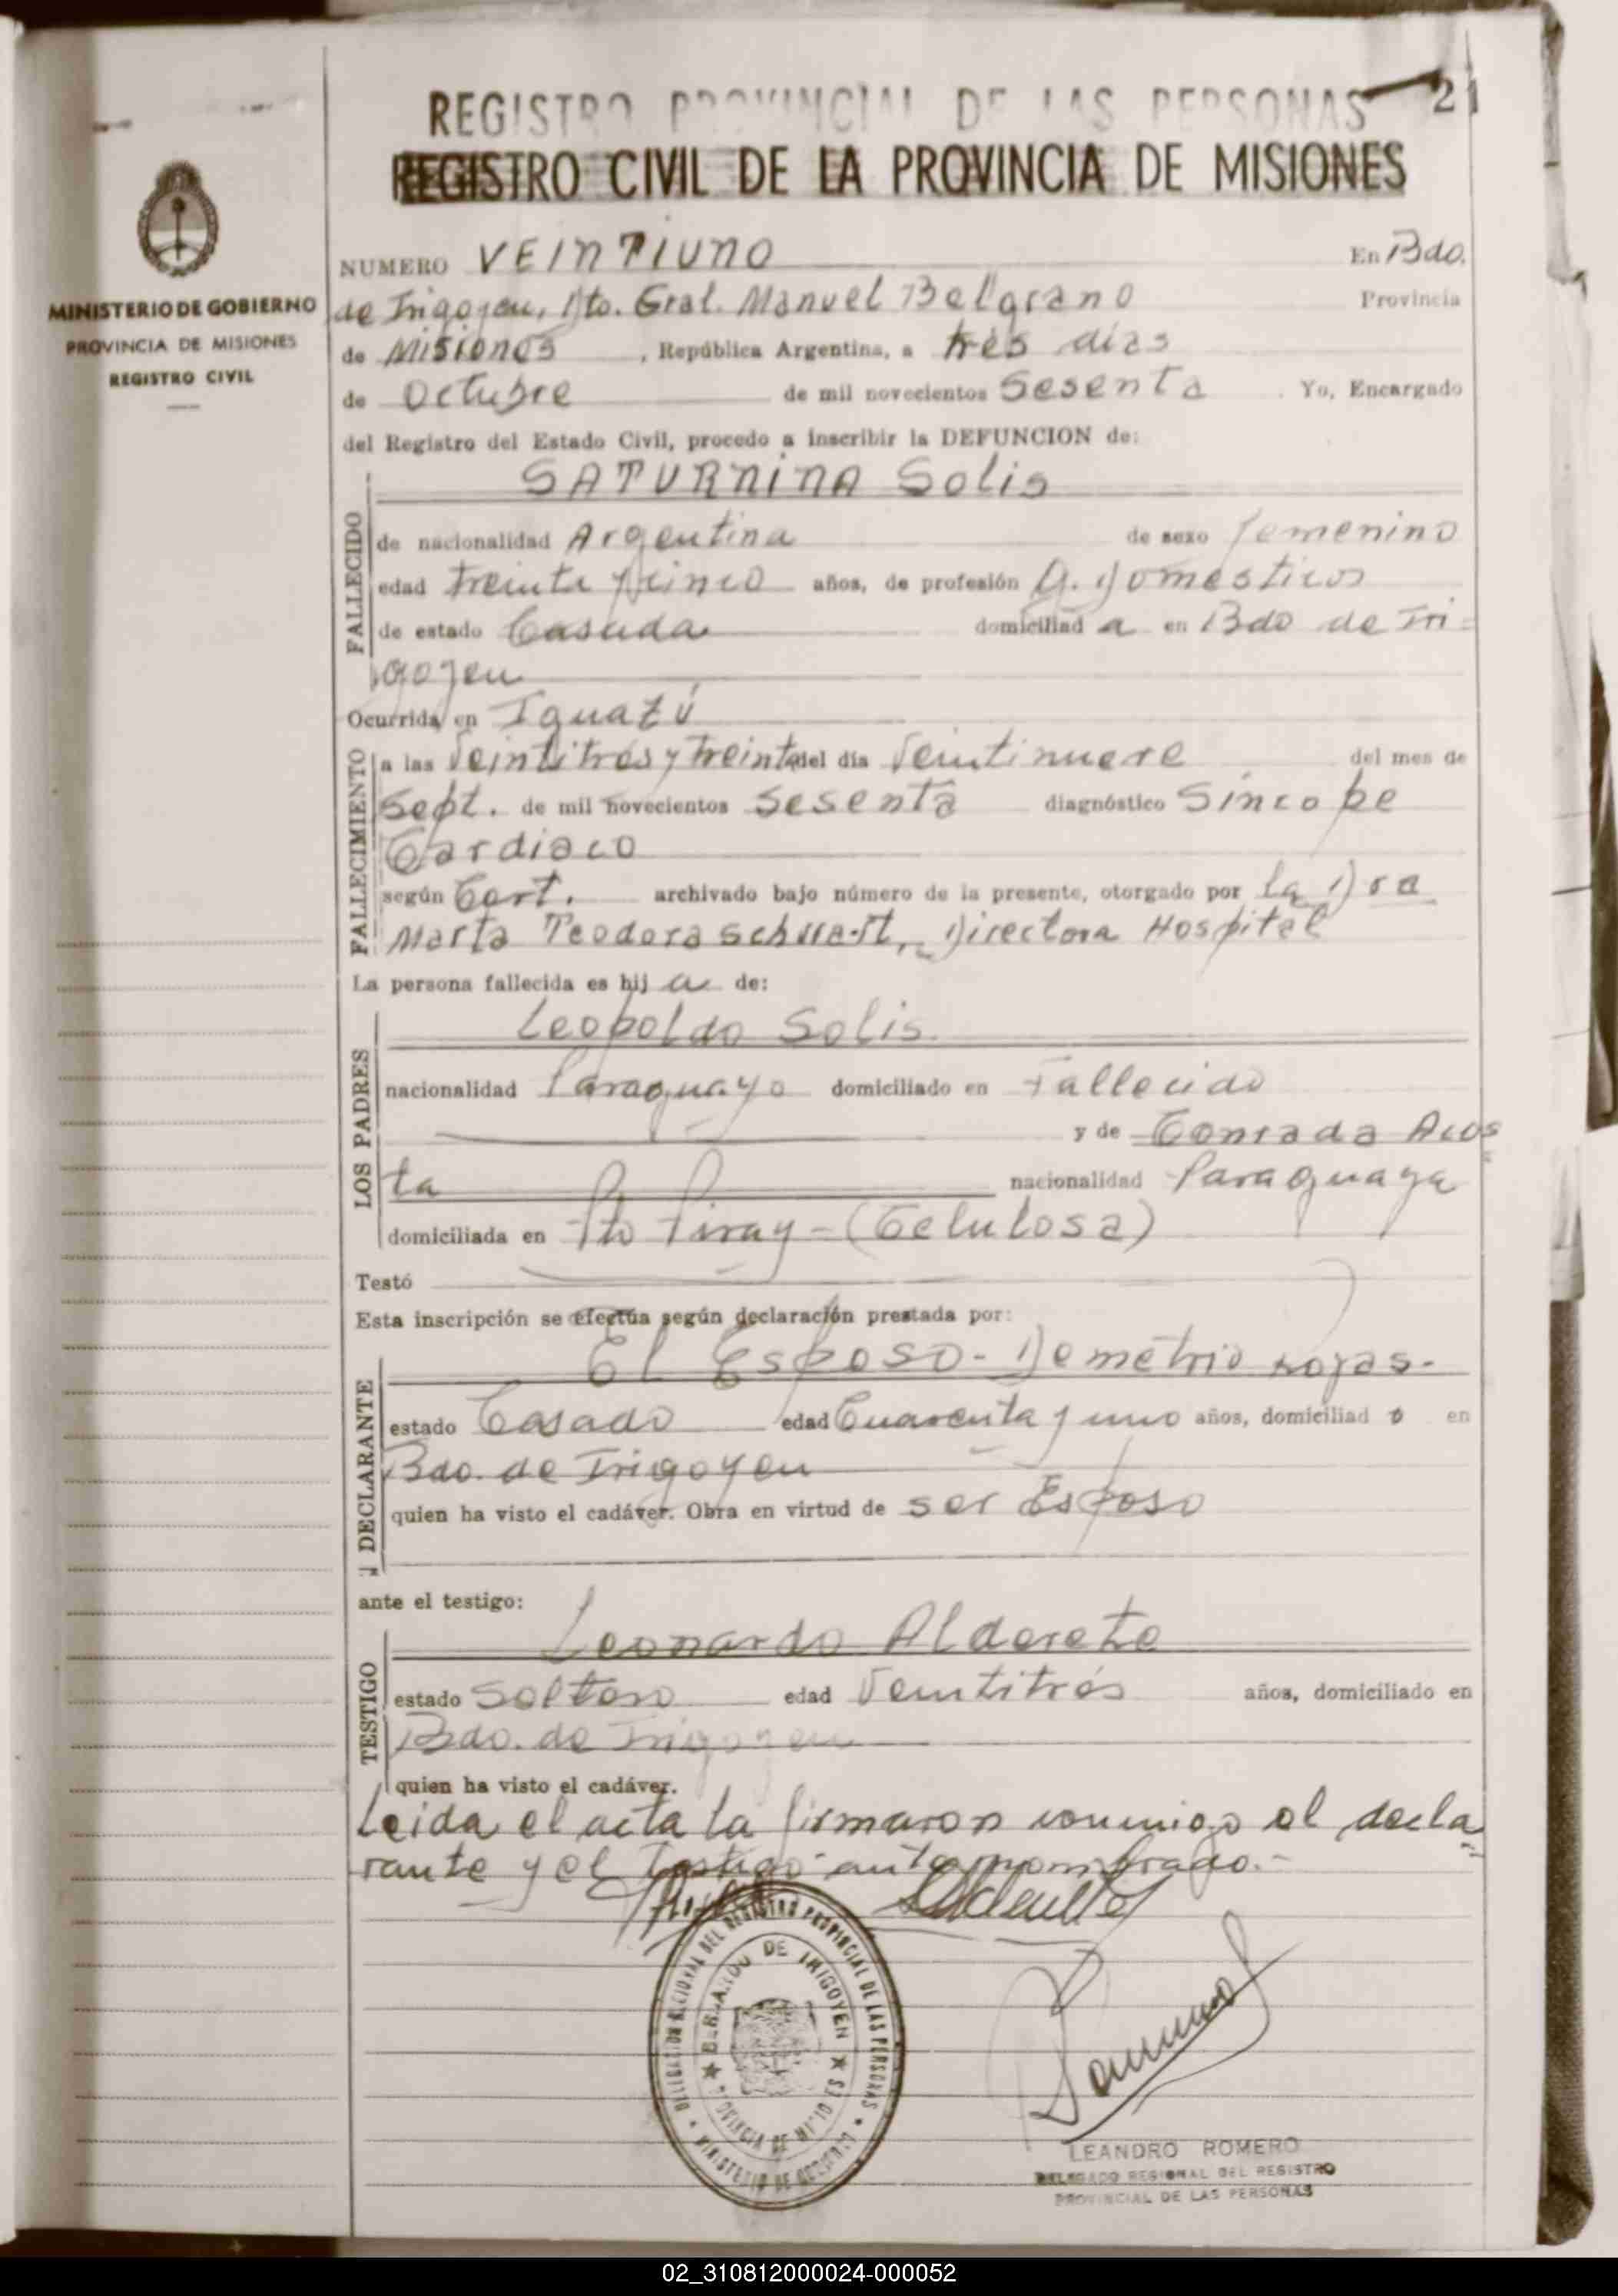 REGISTRO PROVINCIAL DE LAS PERSONAS 21
REGISTRO CIVIL DE LA PROVINCIA DE MISIONES
MINISTERIO DE GOBIERNO
PROVINCIA DE MISIONES
REGISTRO CIVIL
NUMERO VEINTIUNO En Bdo.
de Irigoyen, Dto. Gral. Manuel Belgrano Provincia
de Misiones, República Argentina, a tres días
de Octubre de mil novecientos Sesenta. Yo, Encargado
del Registro del Estado Civil, procedo a inscribir la DEFUNCION de:
SATURNINA Solis
FALLECIDO
de nacionalidad Argentina de sexo femenino
edad treinta y cinco años, de profesión Q. Domesticos
de estado Casada domiciliad a en Bdo de Iri=
goyen
Ocurrida en Iguazú
FALLECIMIENTO
a las Veintitrés y treinta del día Veintinueve del mes de
Sept. de mil novecientos Sesenta diagnóstico Síncope
Cardiaco
según Cert. archivado bajo número de la presente, otorgado por la Dra
Marta Teodora Schwartz, Directora Hospital
La persona fallecida es hij a de:
LOS PADRES
Leopoldo Solis.
nacionalidad Paraguayo domiciliado en Fallecido
y de Conrada Acos
ta nacionalidad Paraguaya
domiciliada en Pto Piray-(Celulosa)
Testó
Esta inscripción se efectúa según declaración prestada por:
DECLARANTE
El Esposo- Demetrio Rojas.-
estado Casado edad Cuarenta y uno años, domiciliad o en
Bdo. de Irigoyen
quien ha visto el cadáver. Obra en virtud de ser Esposo
ante el testigo:
TESTIGO
Leonardo Alderete
estado Soltero edad Veintitrés años, domiciliado en
Bdo. de Irigoyen
quien ha visto el cadáver.
Leida el acta la firmaron conmigo el decla
rante y el testigo antenombrado.-
DELEGACION REGIONAL DEL REGISTRO PROVINCIAL DE LAS PERSONAS
BERNARDO DE IRIGOYEN
PROVINCIA DE MISIONES
MINISTERIO DE GOBIERNO
LEANDRO ROMERO
DELEGADO REGIONAL DEL REGISTRO
PROVINCIAL DE LAS PERSONAS
02_310812000024-000052